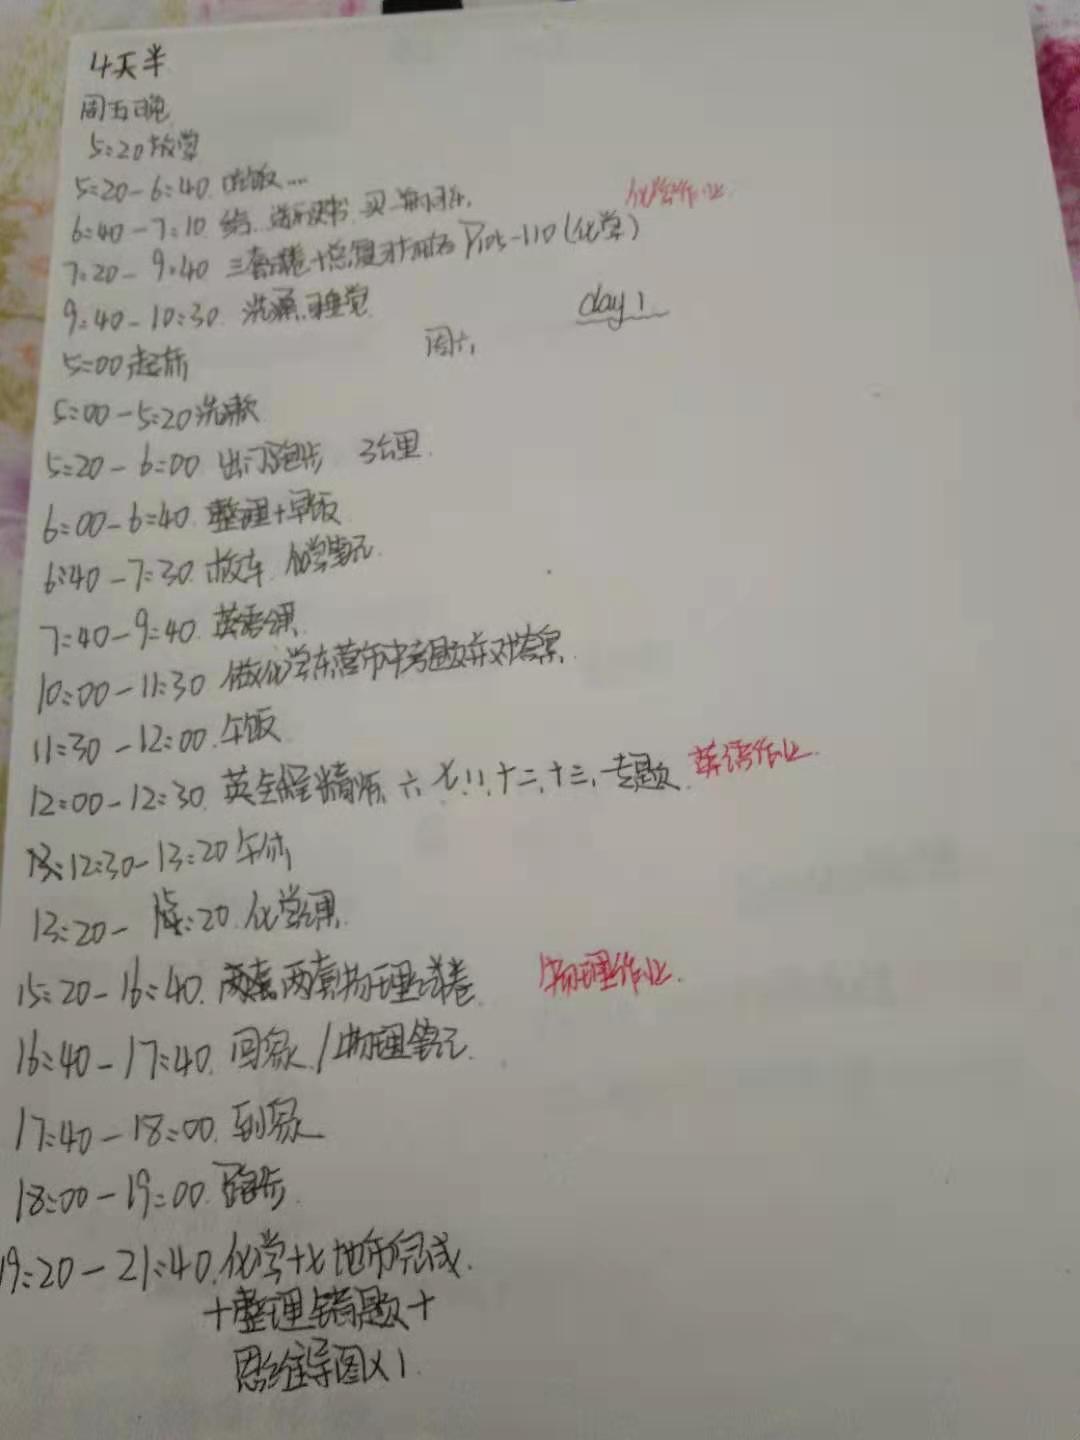 4天半
周五晚
5:20放学
5:20-6:40. 吃饭...
6:40-7:10. 书. 买
化学作业
7:20-9:40 三套卷+总复习 P105-110(化学)
9:40-10:30. 洗澡.睡觉
day 1
周六
5:00起床
5:00-5:20洗漱
5:20-6:00 出门跑步 3公里.
6:00-6:40. 整理+早饭
6:40-7:30. 校车 化学笔记.
7:40-9:40. 英语课
10:00-11:30 做化学东营市中考题并对答案.
11:30-12:00.午饭
12:00-12:30. 英 六.七.八.十二.十三.专题. 英语作业.
12:30-13:20午休
13:20-15:20.化学课.
15:20-16:40. 两套物理试卷. 物理作业.
16:40-17:40. 回家/物理笔记.
17:40-18:00. 到家
18:00-19:00. 跑步.
19:20-21:40.化学十七地市完成.
+整理错题+
思维导图X1.